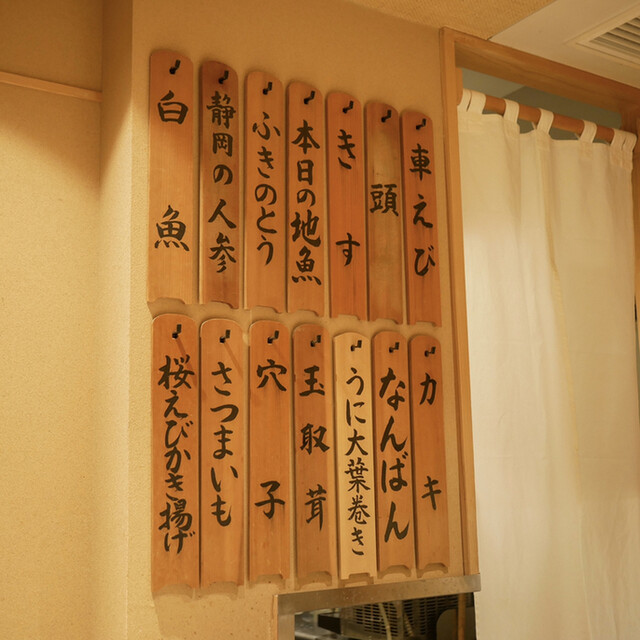 車えび
頭
きす
本日の地魚
ふきのとう
静岡の人参
白魚
カキ
なんばん
うに大葉巻き
玉取茸
穴子
さつまいも
桜えびかき揚げ